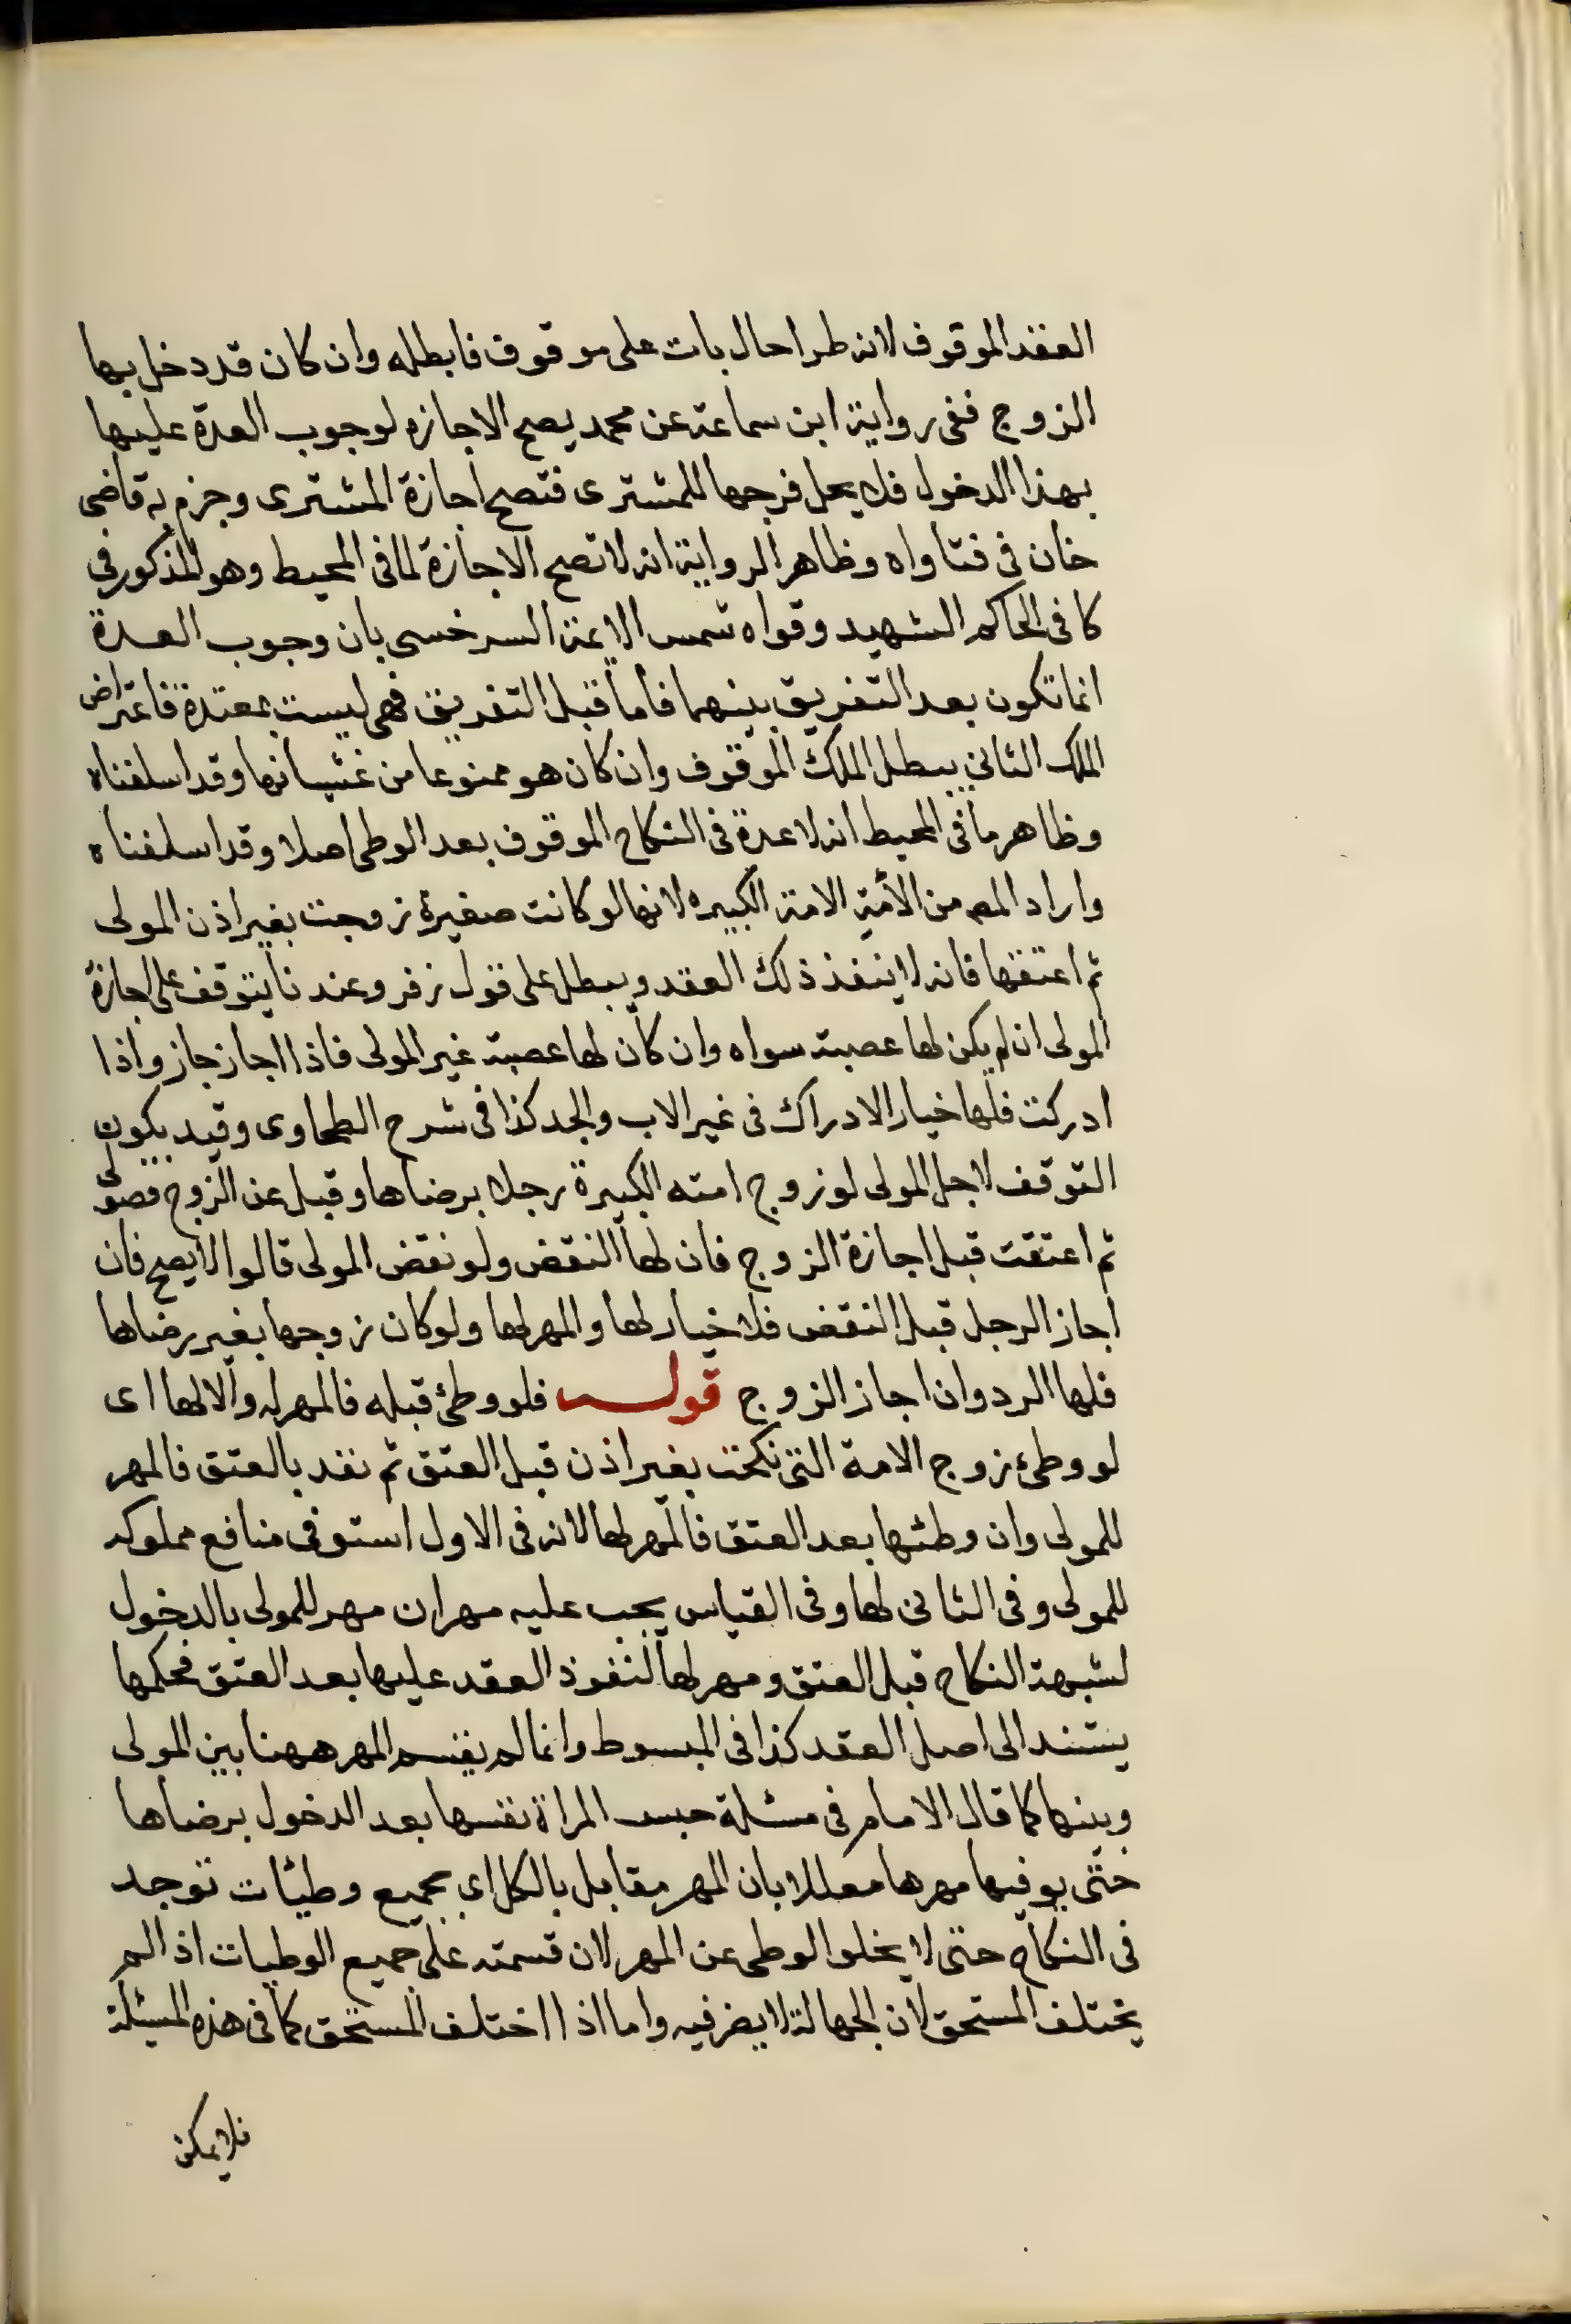 العقد الموقوف لانه طرا حال بات على موقوف فابطله وان كان قد دخل بها
الزوج ففى رواية ابن سماعة عن محمد يصح الاجازه لوجوب العدة عليها
بهذا الدخول فلا يحل فرجها للمشترى فتصح اجازة المشترى وجزم به قاضى
خان فى فتاواه وظاهر الرواية انه لا تصح الاجازة لما فى المحيط وهو المذكور فى
كافى الحاكم الشهيد وقواه شمس الائمة السرخسى بان وجوب العدة
انما تكون بعد التفريق بينهما فاما قبل التفريق فهى ليست بمعتدة فاعتراض
الملك الثانى يبطل الملك الموقوف وان كان هو ممنوعا من غشيانها وقد اسلفناه
وظاهر ما فى المحيط انه لا عدة فى النكاح الموقوف بعد الوطى اصلا وقد اسلفناه
واراد المص من الأمة الامة الكبيره لانها لو كانت صغيرة زوجت بغير اذن المولى
ثم اعتقها فانه لا ينفذ ذلك العقد ويبطل على قول زفر وعندنا يتوقف على اجازة
المولى ان لم يكن لها عصبة سواه وان كان لها عصبة غير المولى فاذا اجاز جاز واذا
ادركت فلها خيار الادراك فى غير الاب والجد كذا فى شرح الطحاوى وقيد بكون
التوقف لاجل المولى لو زوج امته الكبيرة رجلا برضاها وقبل عن الزوج فضولى
ثم اعتقت قبل اجازة الزوج فان لها النقض ولو نقض المولى قالوا لا يصح فان
اجاز الرجل قبل النقض فلا خيار لها والمهر لها ولو كان زوجها بغير رضاها
فلها الرد وان اجاز الزوج قوله فلو وطئ قبله فالمهر له والا لها اى
لو وطئ زوج الامة التى نكحت بغير اذن قبل العتق ثم نفد بالعتق فالمهر
للمولى وان وطئها بعد العتق فالمهر لها لانه فى الاول استوفى منافع مملوكه
للمولى وفى الثانى لها وفى القياس يجب عليه مهران مهر للمولى بالدخول
لشبهة النكاح قبل العتق ومهر لها لنفوذ العقد عليها بعد العتق فحكمها
يستند الى اصل العقد كذا فى المبسوط وانما لم يقسم المهر ههنا بين المولى
وبينها كما قال الامام فى مسئلة حبس المراة نفسها بعد الدخول برضاها
حتى يوفيها مهرها معللا بان المهر مقابل بالكل اى بجميع وطيئات توجد
فى النكاح حتى لا يخلو الوطى عن المهر لان قسمته على جميع الوطيات اذا لم
يختلف المستحق لان الجهالة لا يضر فيه واما اذا اختلف المستحق كما فى هذه المسئلة
فلا يمكن